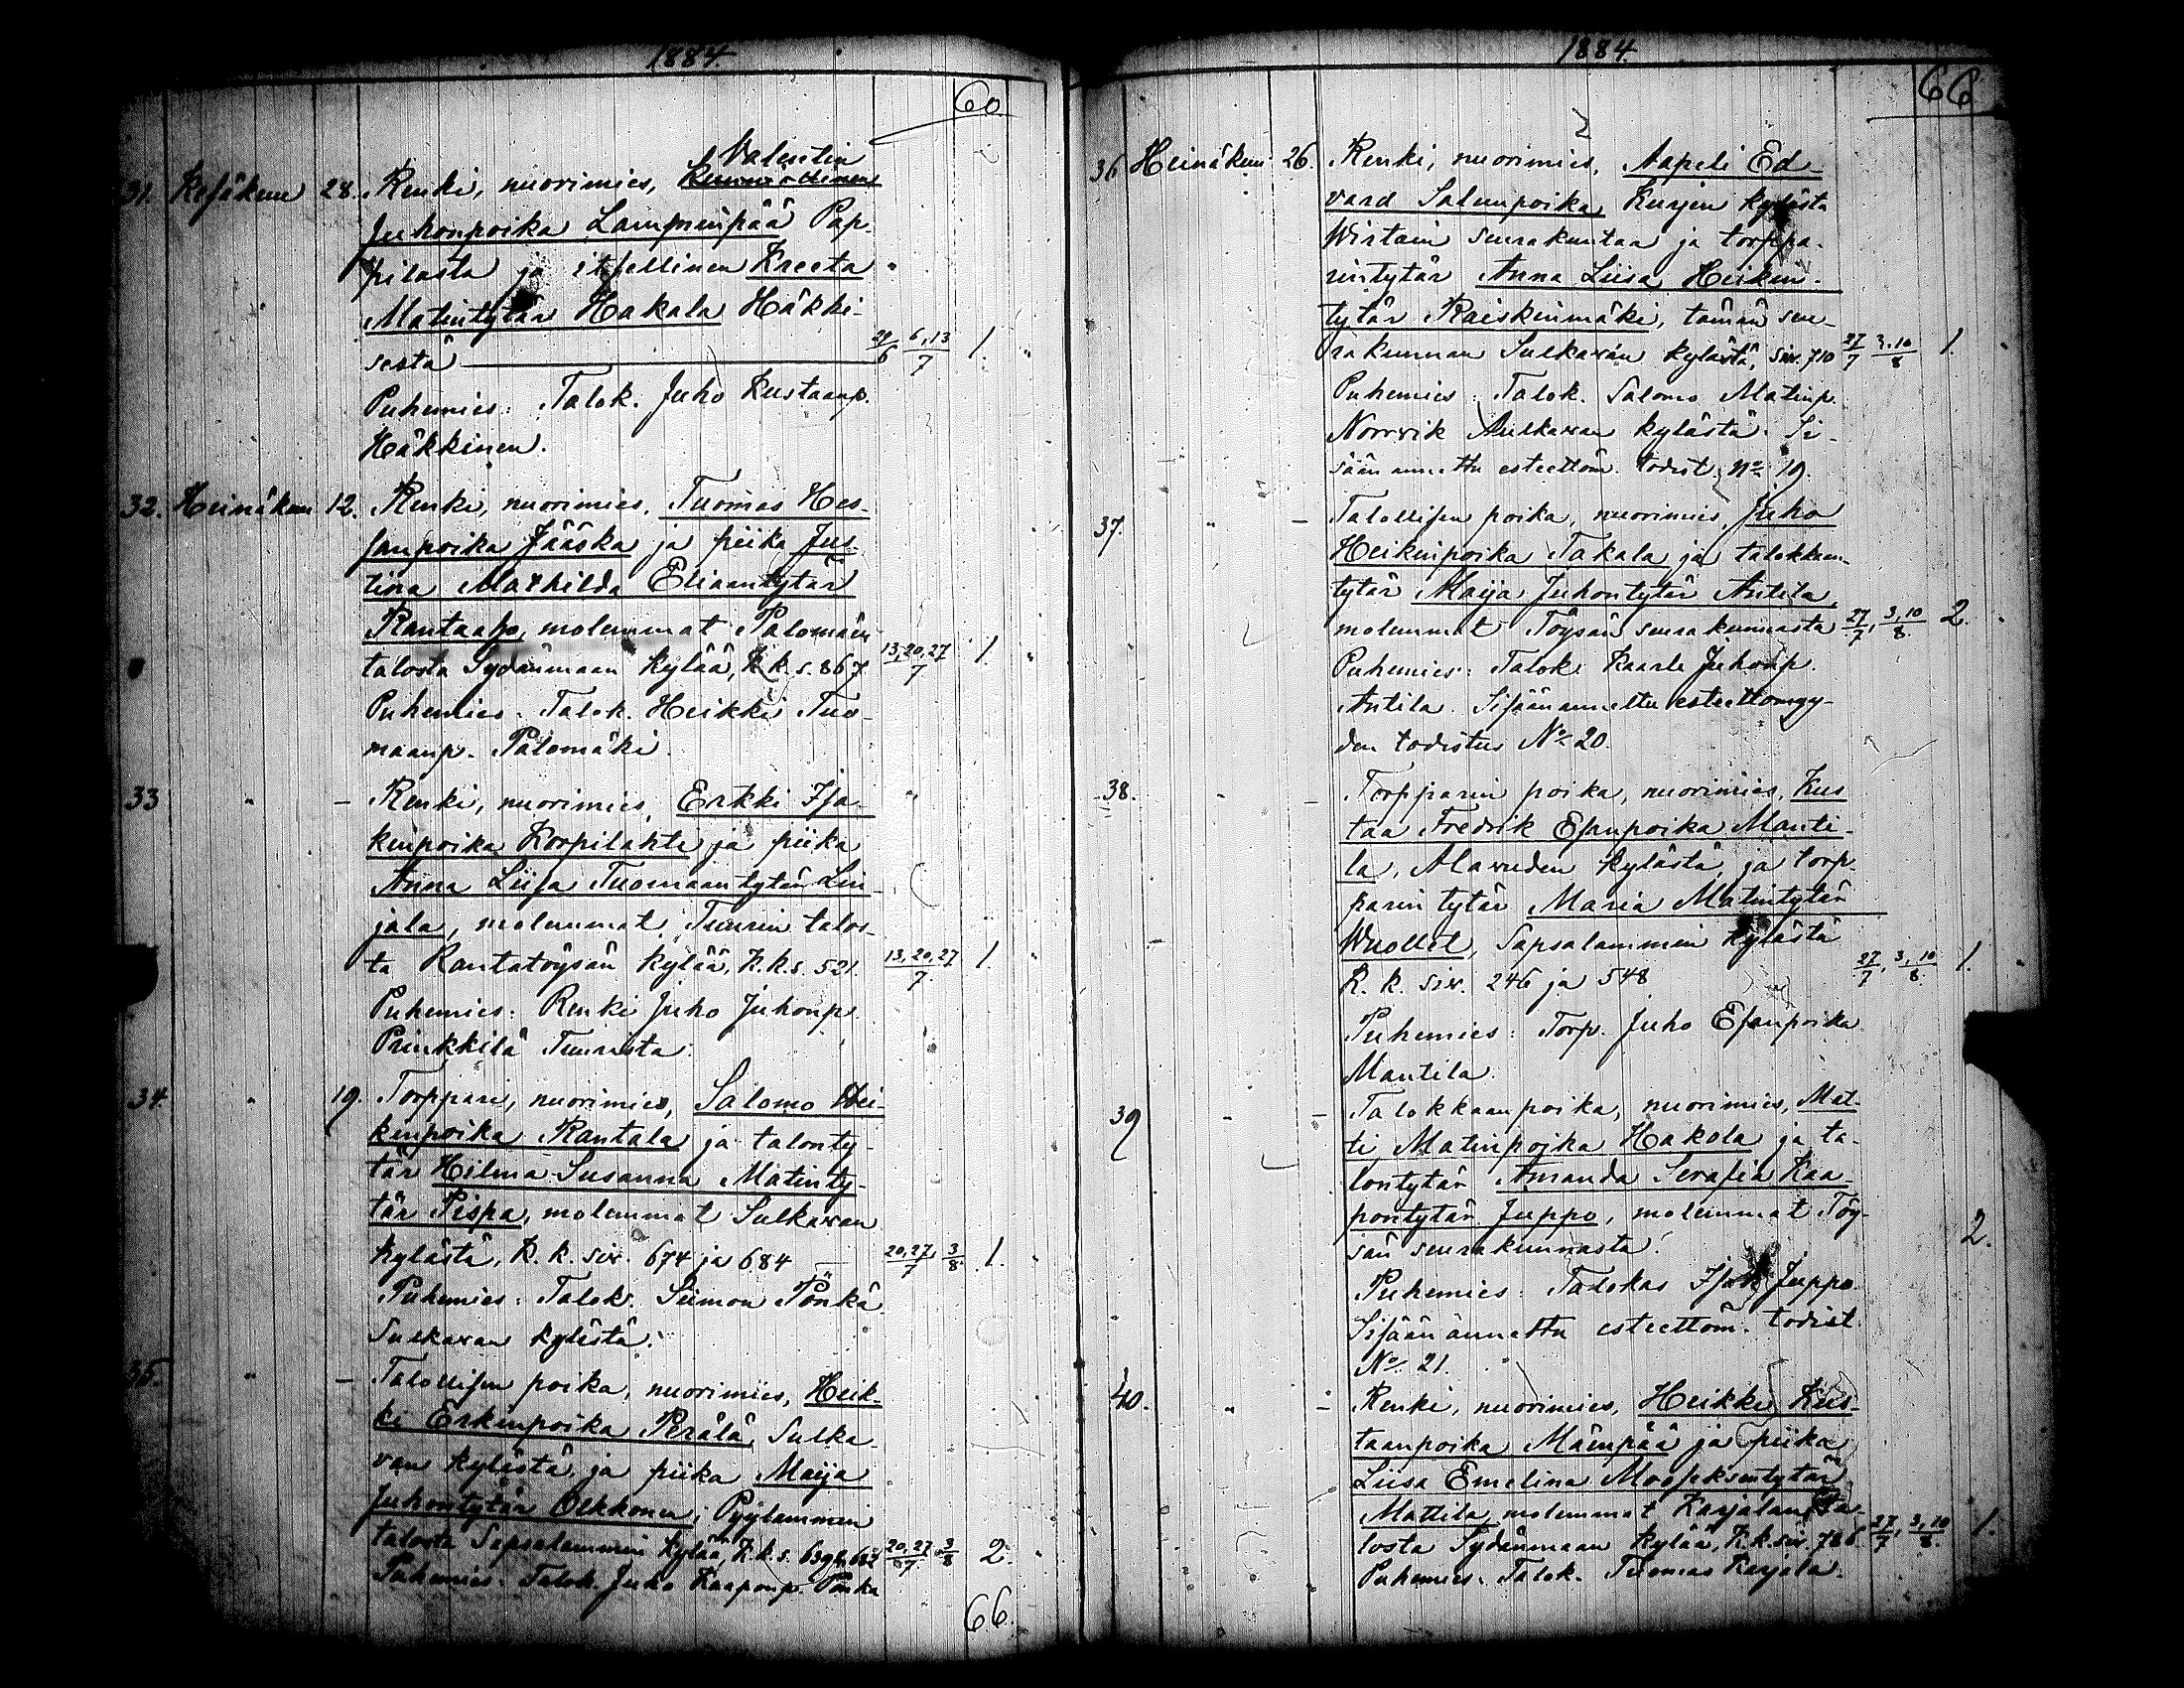 1884.
60
Valentin
31. Kesäkuu 28. Renki, nuorimies,
Juhonpoika Lamminpää Pap-
pilasta ja itsellinen Kreeta
Matintytär Hakala Häkki-
sestä 29/6 6,13/7 1.
Puhemies: Talok. Juho Kustaanp.
Häkkinen.
32. Heinäkuu 12. Renki, nuorimies, Tuomas Hes-
sanpoika Jääska ja piika Jus-
tina Mathilda Eliaantytär
Rantaaho, molemmat Palomäen
talosta Sydänmaan kylää, K.k.s. 867 13,20,27/7 1.
Puhemies. Talok. Heikki Tuo-
maanp. Palomäki.
33 " – Renki, nuorimies, Erkki Isa-
kinpoika Korpilahti ja piika
Anna Liisa Tuomaantytär Lin-
jala, molemmat Tuurin talos-
ta Rantatöysän kylää, K.k.s. 521. 13,20,27/7. 1.
Puhemies: Renki Juho Juhonp.
Prinkkilä Tuurista.
34. " 19. Torppari, nuorimies, Salomo Hei-
kinpoika Rantala ja talonty-
tär Hilma Susanna Matinty-
tär Pispa, molemmat Sulkavan
kylästä, K. k. siv. 674 ja 684 20,27/7, 3/8. 1.
Puhemies: Talok. Siimon Pönkä
Sulkavan kylästä.
35. " – Talollisen poika, nuorimies, Heik-
ki Erkinpoika Perälä, Sulka-
van kylästä, ja piika Maija
Juhontytär Olkkonen, Pyylammin
talosta Sapsalammin kylää, K.k.s. 20,27/7, 3/8 2.
Puhemies. Talok. Juho Kaaponp. Pönkä
66.
1884.
66
36 Heinäkuu 26. Renki, nuorimies, Aapeli Ed-
vard Salunpoika Kurjen kylästä
Wirtain seurakuntaa ja torppa-
rintytär Anna Liisa Heikin-
tytär Raiskinmäki, tämän seu-
rakunnan Sulkavan kylästä, siv. 710 27/7 3,10/8 1.
Puhemies: Talok. Salomo Matinp.
Norrvik Sulkavan kylästä. Si-
sään annettu esteettöm. todist. No 19.
37. " – Talollisen poika, nuorimies, Juho
Heikinpoika Takala ja talokkaan-
tytär Maija Juhontytär Antila,
molemmat Töysän seurakunnasta 27/7, 3,10/8. 2.
Puhemies: Talok. Kaarle Juhonp.
Antila. Sisäänannettu esteettömyy-
den todistus No 20.
38. " – Torpparin poika, nuorimies, Kus
taa Fredrik Esanpoika Manti-
la, Alavuden kylästä, ja torp-
parin tytär Maria Matintytär
Wuollet, Sapsalammin kylästä
K. k. siv. 246 ja 548 27/7, 3,10/8. 1.
Puhemies: Torp. Juho Esanpoika
Mantila.
39 " – Talokkaanpoika, nuorimies, Mat-
ti Matinpoika Hakola ja ta-
lontytär Amanda Serafia Kaa-
pontytär Juppo, molemmat Töy-
sän seurakunnasta. 2.
Puhemies: Talokas Isak Juppo.
Sisäänannettu esteettöm. todist
No 21.
40. " – Renki, nuorimies, Heikki Kus-
taanpoika Mäenpää ja piika
Liisa Emelina Mooseksentytär
Mattila, molemmat Karjalan ta-
losta Sydänmaan kylää, K.k.siv. 786. 27/7, 3,10/8. 1.
Puhemies. Talok. Tuomas Karjala.